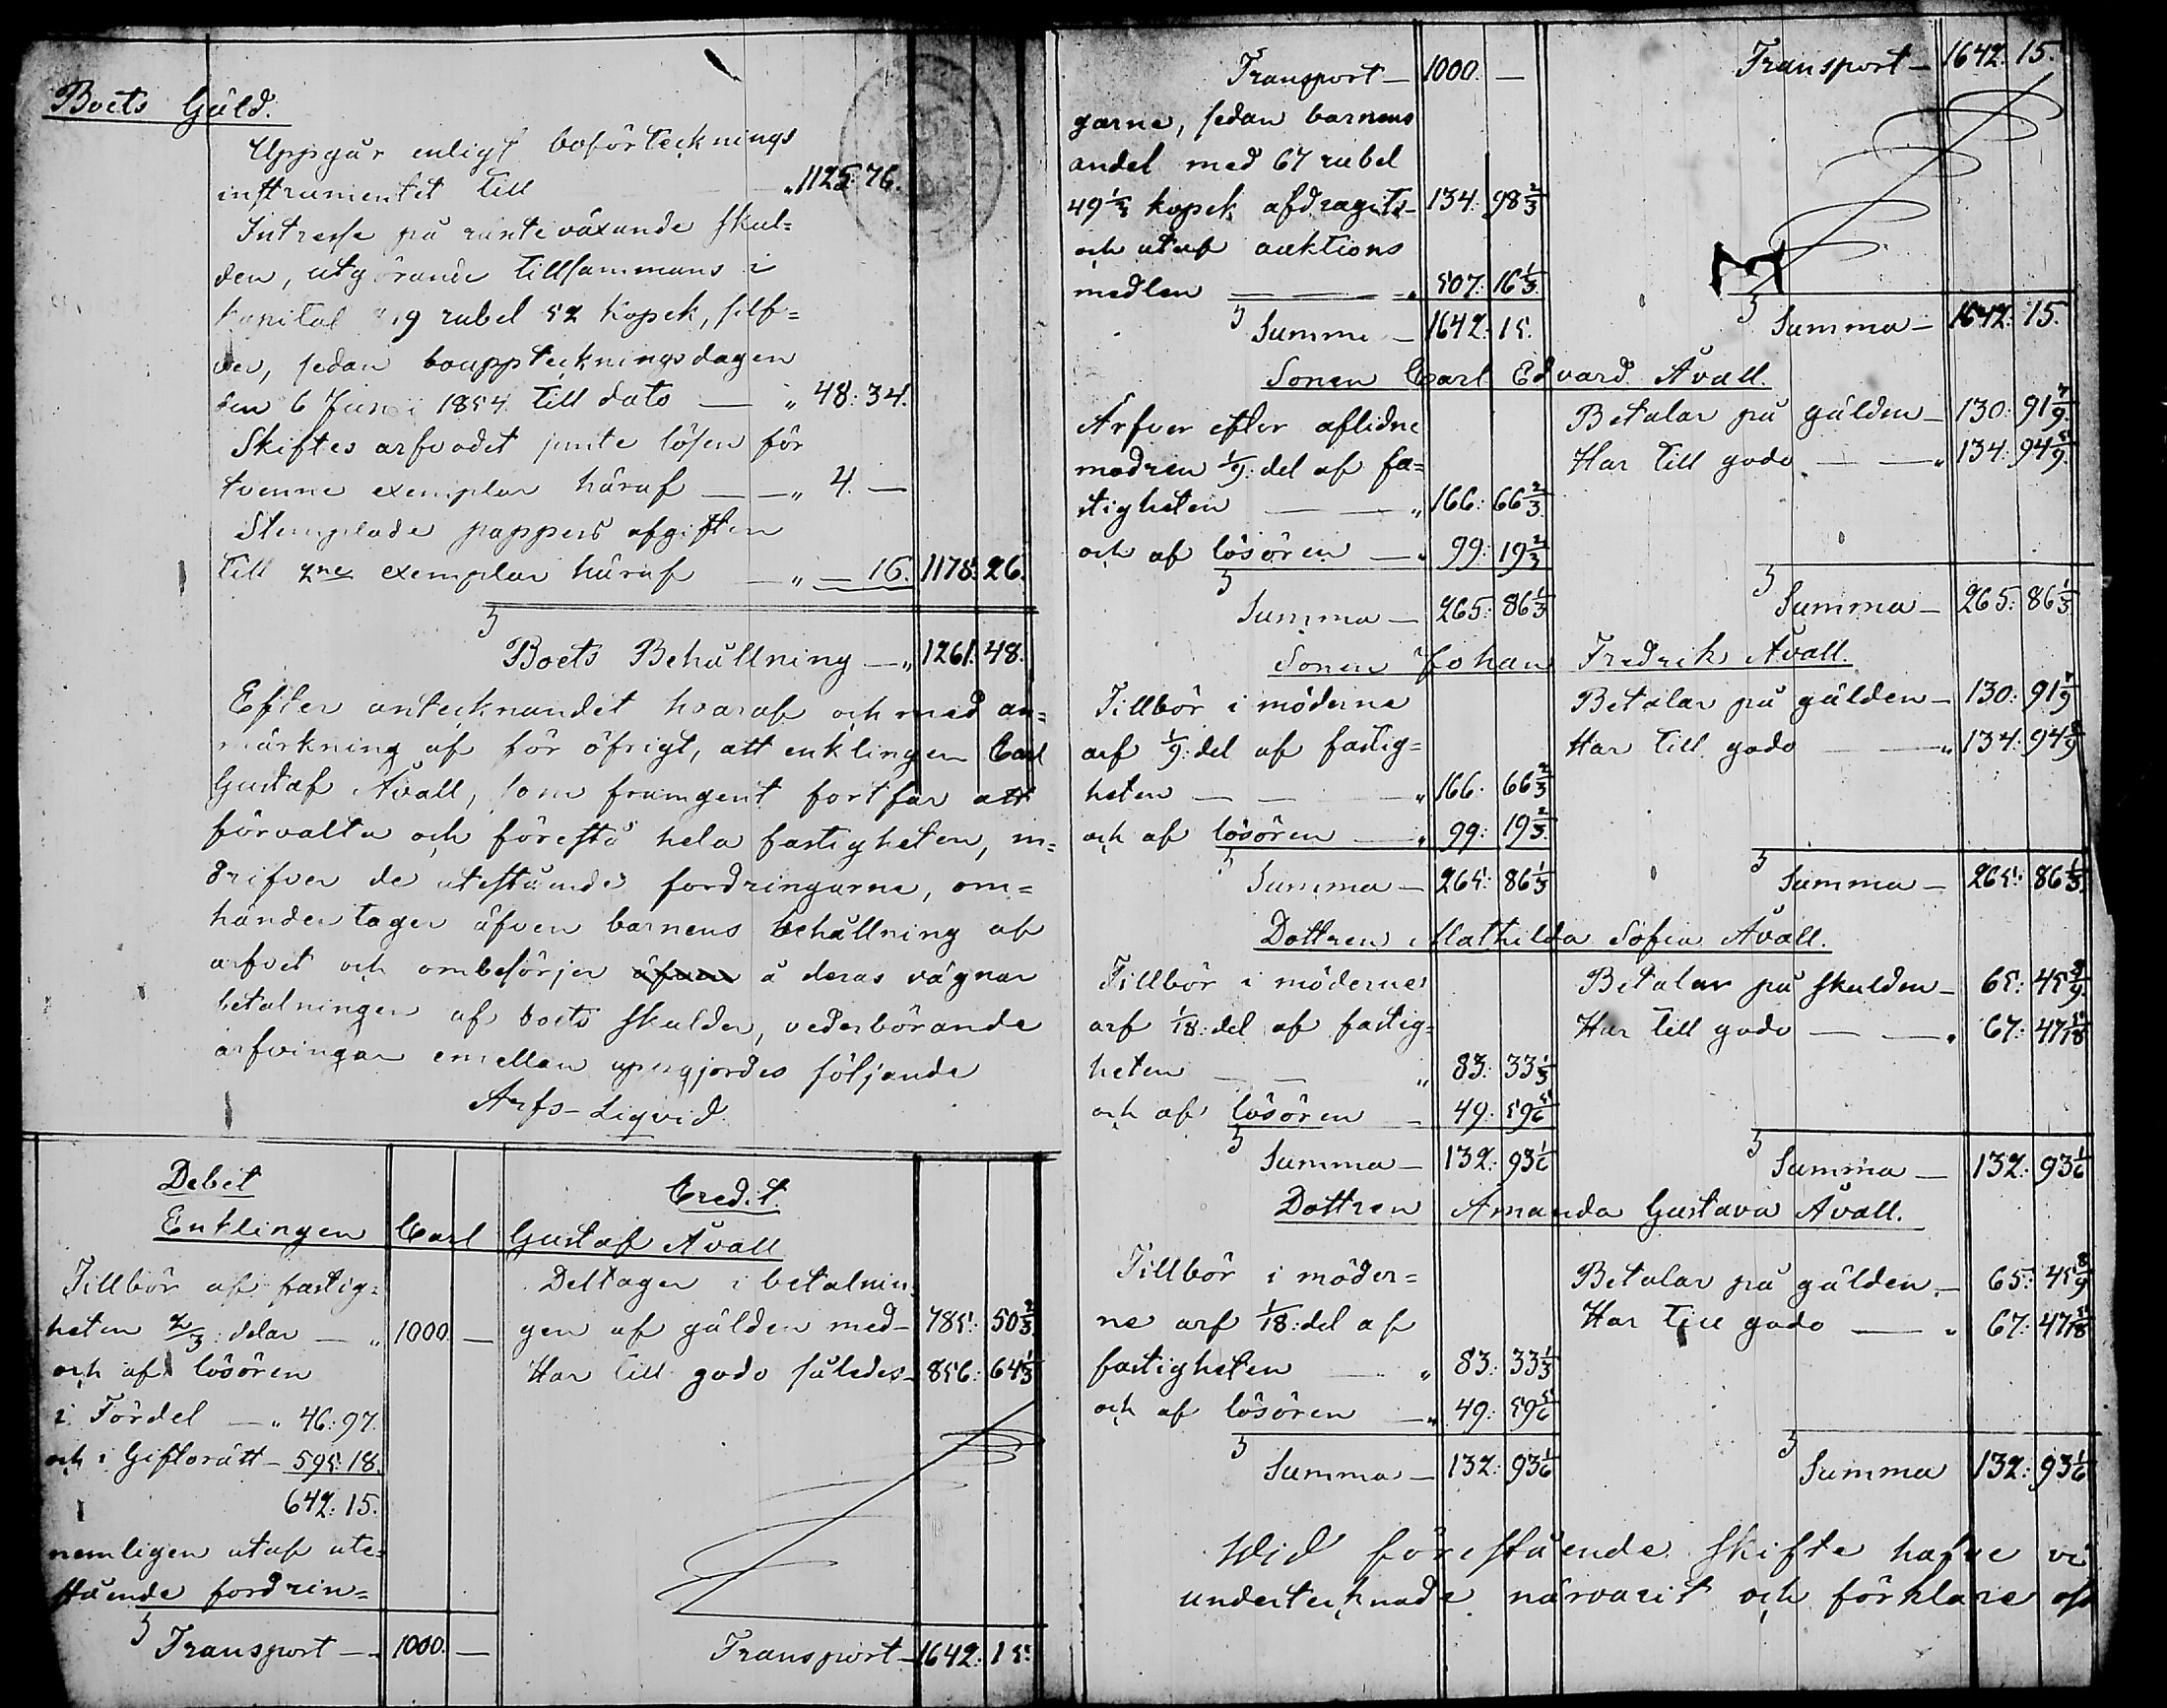 Boets Gäld.
Uppgår enligt boförtecknings
instrumentet till „ 1125: 76.
Intresse på ränteväxande skul=
den, utgörande tillsammans i
kapital 819 rubel 52 kopek, silf=
ver, sedan bouppteckningsdagen
den 6 Juni 1854 till dato — „ 48: 34.
Skiftes arfvodet jemte lösen för
tvenne exemplar häraf — — „ 4. —
Stemplade pappers afgiften
till 2ne exemplar häraf — „ — 16. 1178: 26.
Boets Behållning — „ 1261. 48.
Efter antecknandet hvaraf och med an=
märkning af för öfrigt, att enklingen Carl
Gustaf Åvall, som framgent fortfar att
förvalta och förestå hela fastigheten, in=
drifver de utestående fordringarne, om=
händertager äfven barnens behållning af
arfvet och ombesörjer äfven å deras vägnar
betalningen af boets skulder, vederbörande
arfvingar emellan uppgjordes följande
Arfs-Liqvid.
Debet Credit.
Enklingen Carl Gustaf Åvall
Tillbör af fastig=
heten 2/3: delar — „ 1000. —
och af lösören
i Fördel — „ 46: 97.
och i Giftorätt — 595: 18.
642: 15.
nemligen utaf ute=
stående fordrin=
Transport — 1000. —
Deltager i betalnin=
gen af gälden med — 785: 50 2/3
Har till godo således — 856: 64 1/3
Transport — 1642: 15.
Transport — 1000. —
garne, sedan barnens
andel med 67 rubel
49 1/3 kopek afdragits — 134: 98 2/3
och utaf auktions
medlen — — — „ 507: 16 1/3.
Summa — 1642: 15.
Transport — 1642: 15.
Summa — 1642: 15.
Sonen Carl Edvard Åvall.
Ärfver efter aflidne
modren 1/9: del af fa=
stigheten — — „ 166: 66 2/3
och af lösören — „ 99: 19 2/3
Summa — 265: 86 1/3
Betalar på gälden — 130: 91 7/9.
Har till godo — — „ 134: 94 5/9.
Summa — 265: 86 1/3
Sonen Johan Fredrik Åvall.
Tillbör i möderne
arf 1/9: del af fastig=
heten — — — „ 166. 66 2/3
och af lösören — „ 99: 19 2/3.
Summa — 265: 86 1/3
Betalar på gälden — 130: 91 7/9
Har till godo — — „ 134: 94 5/9
Summa — 265: 86 1/3.
Dottren Mathilda Sofia Åvall.
Tillbör i möderne
arf 1/18: del af fastig=
heten — — „ 83: 33 1/3
och af lösören — 49: 59 5/6
Summa — 132: 93 1/6
Betalar på skulden — 65: 45 8/9.
Har till godo — — „ 67: 47 5/18
Summa — 132: 93 1/6
Dottren Amanda Gustava Åvall.
Tillbör i möder=
ne arf 1/18: del af
fastigheten — „ 83: 33 1/3
och af lösören — „ 49: 59 5/6
Summa — 132: 93 1/6
Betalar på gälden. — 65: 45 8/9
Har till godo — „ 67: 47 5/18
Summa 132: 93 1/6
Wid förestående skifte hafve vi
undertecknade närvarit och förklare oss